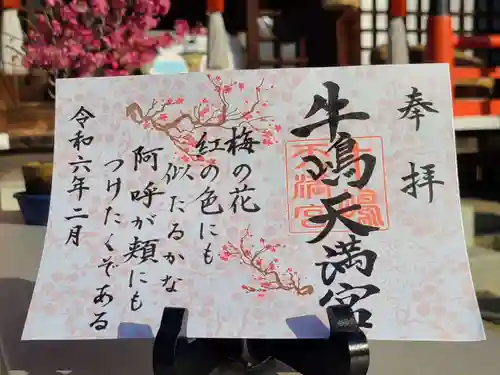 奉拝
牛嶋天満宮
梅の花
紅の色にも
似たるかな
阿呼が頬にも
つけたくぞある
令和六年二月